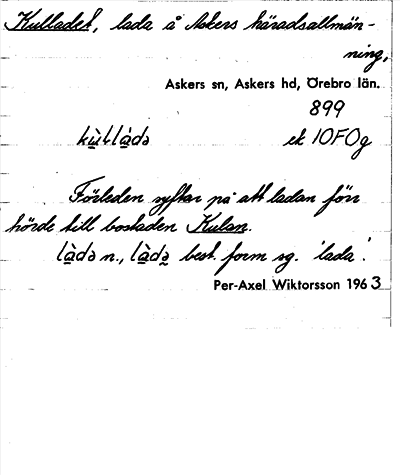 Kulladet, lada å Askers häradsallmän-
ning,
Askers sn, Askers hd, Örebro län.
899
kù̱l-là̱də ek 10F0g
Förleden syftar på att ladan förr
hörde till bostaden Kulan.
là̱də n., là̱də̰ best. form sg. 'lada'.
Per-Axel Wiktorsson 1963